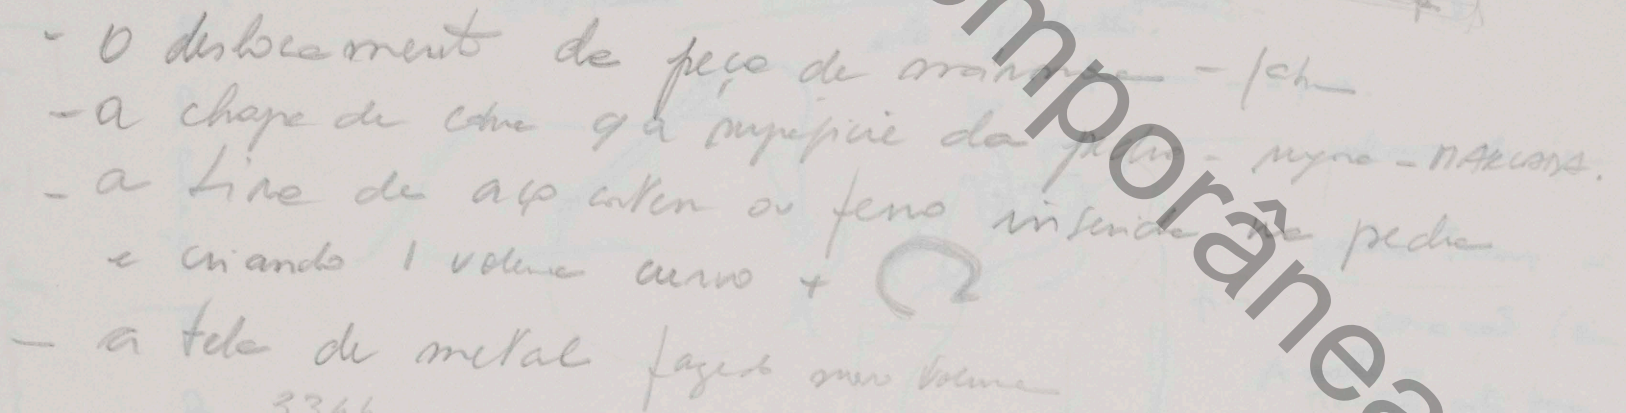 - O deslocamento da peça de
- a chapa de cobre q a superfície da pedra - - MARCADA.
- a tira de aço corten ou ferro inserida na pedra
e criando 1 volume curvo +
- a tela de metal fazendo volume
3344
omporânea